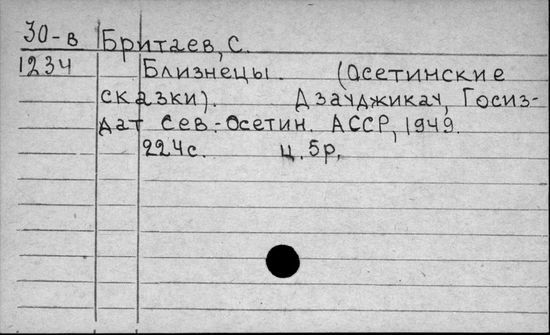 30-в Бритаев, С.
1234 Близнецы. (Осетинские
сказки). Дзауджикау, Госиз-
дат Сев.-Осетин. АССР, 1949.
224с. ц. 5р.